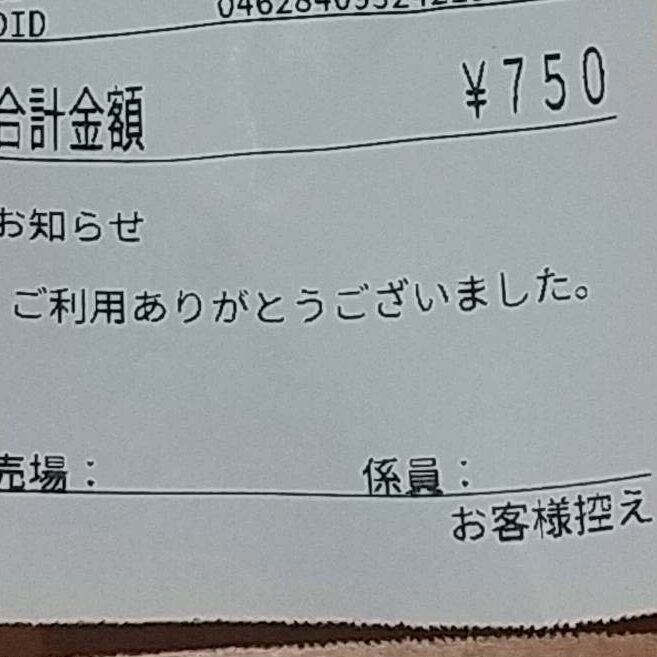 合計金額 ¥750
お知らせ
ご利用ありがとうございました。
売場： 係員：
お客様控え